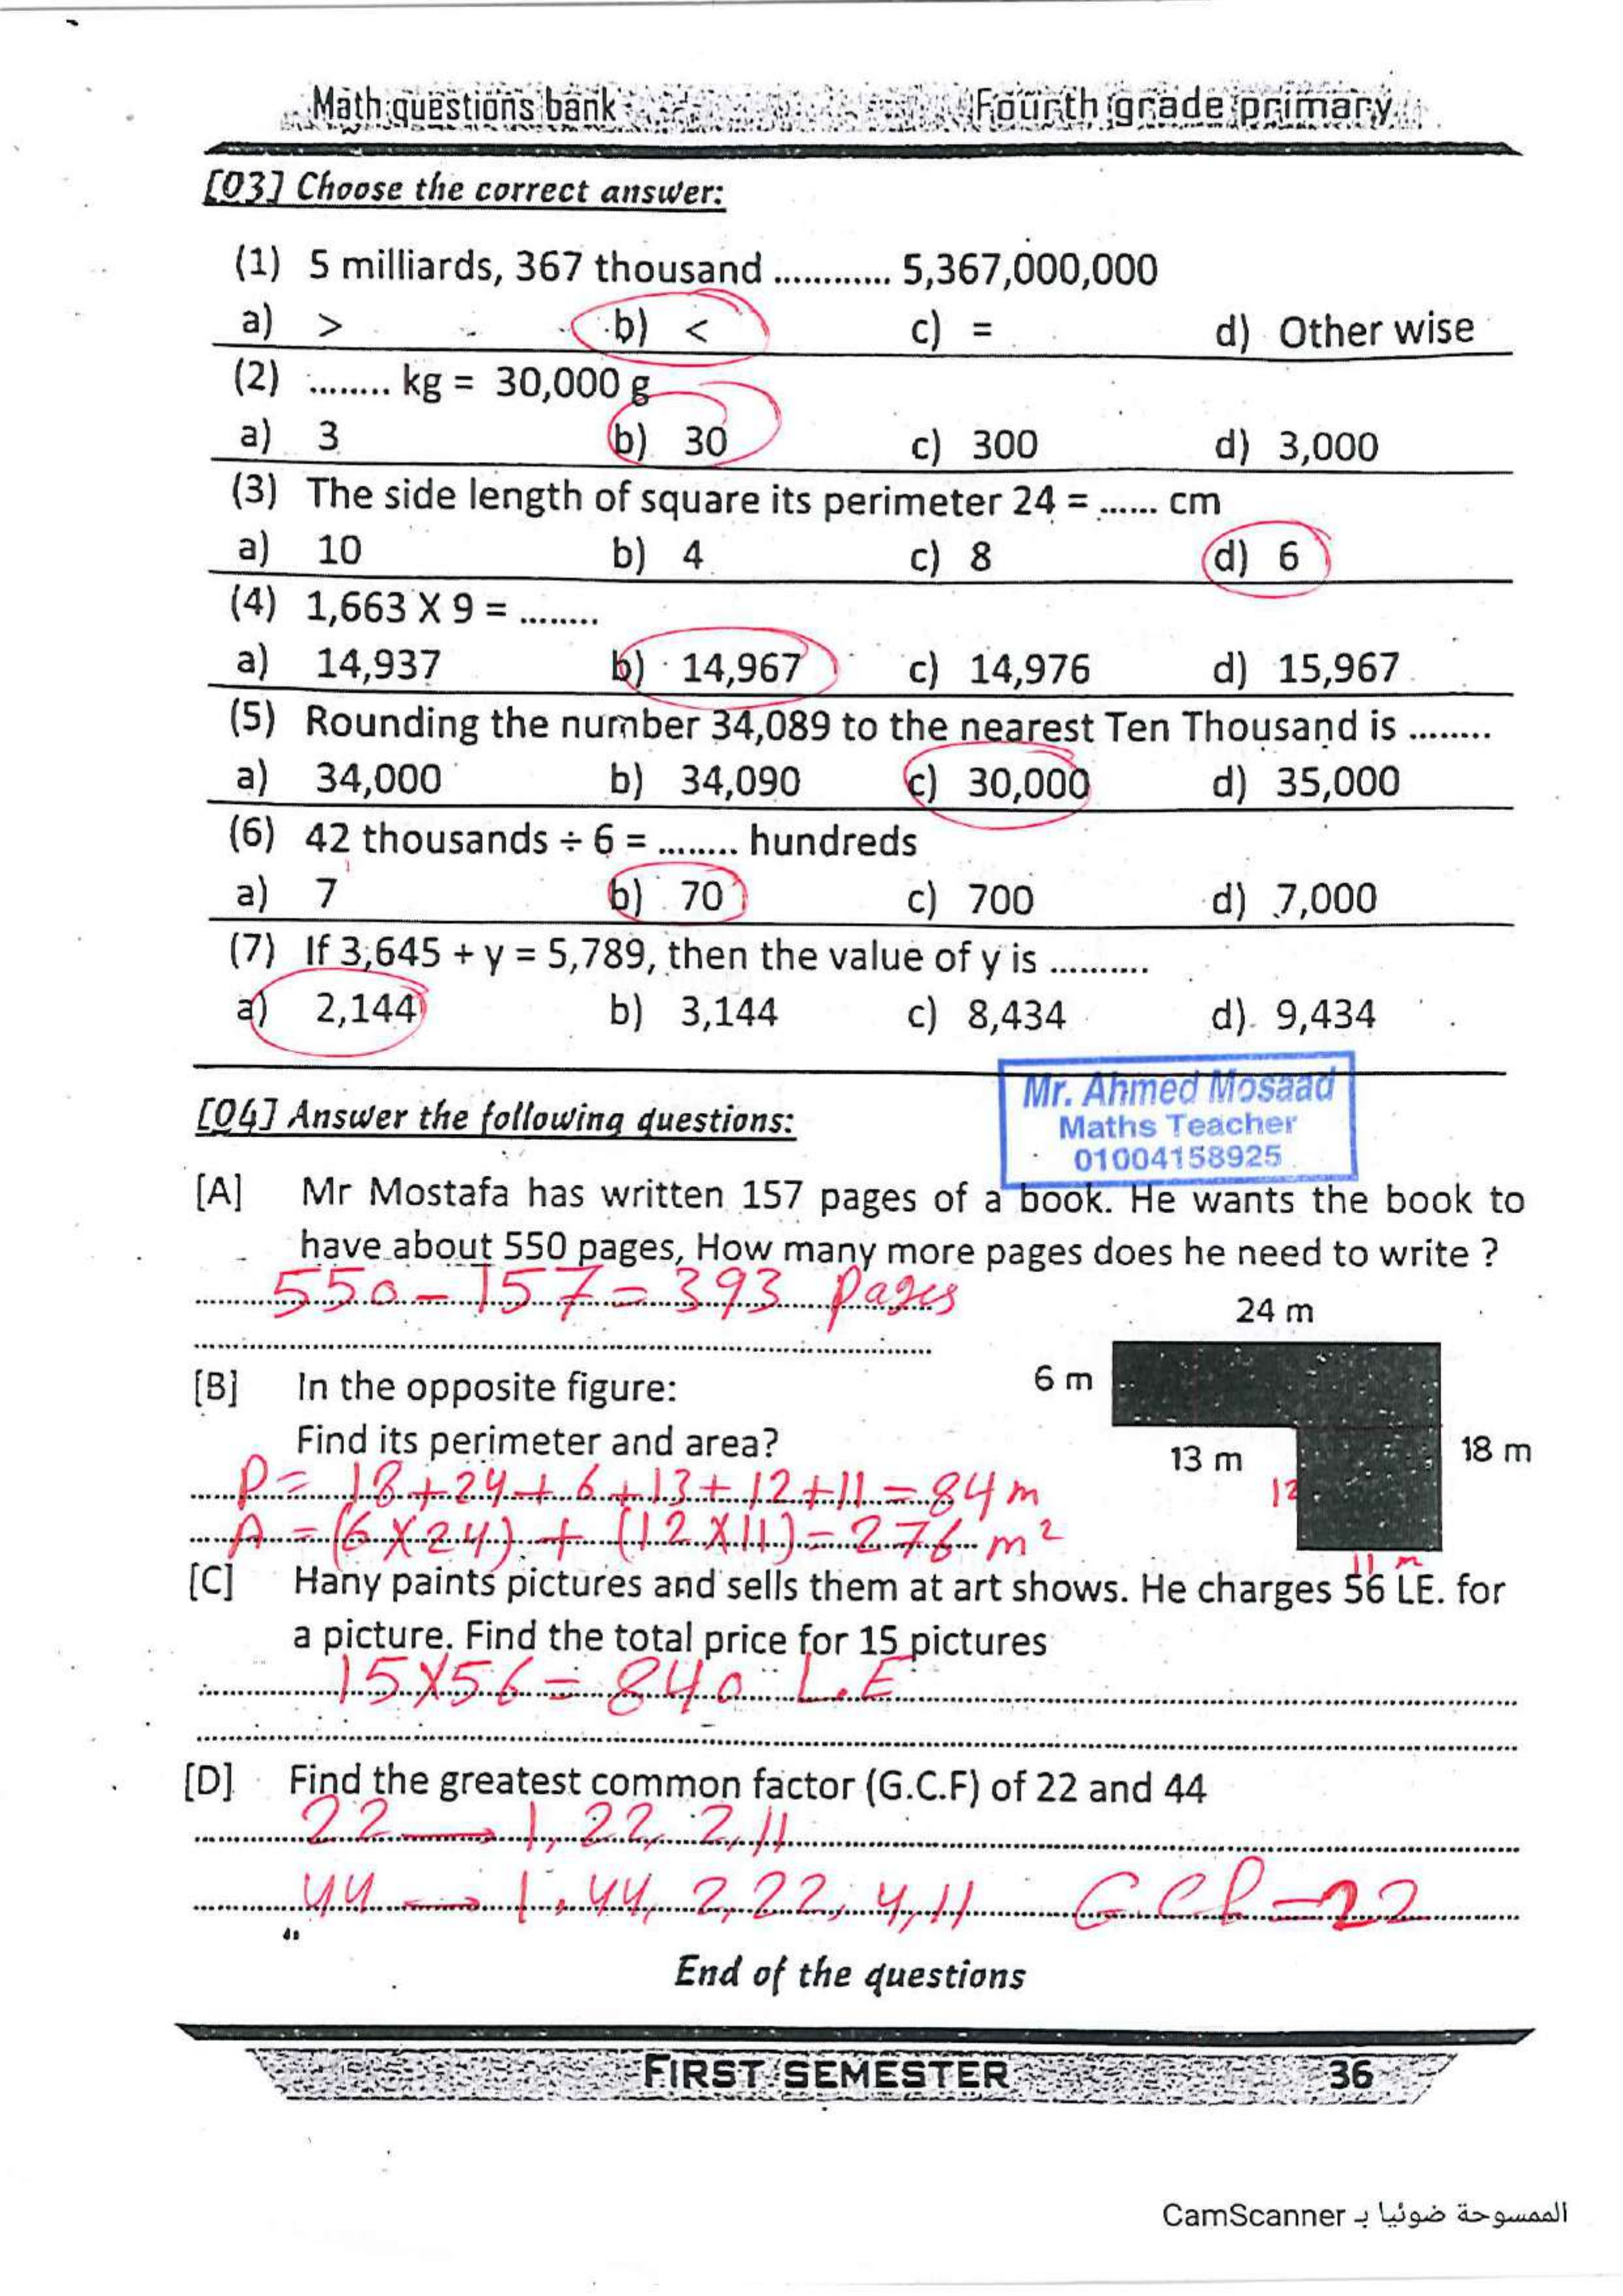 Math questions bank Fourth grade primary
[03] Choose the correct answer:
(1) 5 milliards, 367 thousand ............ 5,367,000,000
a) > b) < c) = d) Other wise
(2) ........ kg = 30,000 g
a) 3 b) 30 c) 300 d) 3,000
(3) The side length of square its perimeter 24 = ...... cm
a) 10 b) 4 c) 8 d) 6
(4) 1,663 X 9 = ........
a) 14,937 b) 14,967 c) 14,976 d) 15,967
(5) Rounding the number 34,089 to the nearest Ten Thousand is ........
a) 34,000 b) 34,090 c) 30,000 d) 35,000
(6) 42 thousands ÷ 6 = ........ hundreds
a) 7 b) 70 c) 700 d) 7,000
(7) If 3,645 + y = 5,789, then the value of y is ..........
a) 2,144 b) 3,144 c) 8,434 d) 9,434
Mr. Ahmed Mosaad
Maths Teacher
01004158925
[04] Answer the following questions:
[A] Mr Mostafa has written 157 pages of a book. He wants the book to
have about 550 pages, How many more pages does he need to write ?
550 - 157 = 393 pages
24 m
6 m
[B] In the opposite figure:
Find its perimeter and area?
13 m 18 m
P = 18+24+6+13+12+11 = 84 m
12
A = (6 X 24) + (12 X 11) = 276 m²
11 m
[C] Hany paints pictures and sells them at art shows. He charges 56 LE. for
a picture. Find the total price for 15 pictures
15 X 56 = 840 L.E
[D] Find the greatest common factor (G.C.F) of 22 and 44
22 → 1, 22, 2, 11
44 → 1, 44, 2, 22, 4, 11 G.C.F = 22
End of the questions
FIRST SEMESTER 36
الممسوحة ضوئيا بـ CamScanner